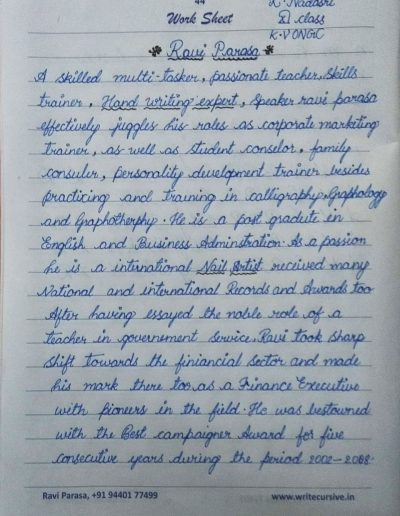 44
Work Sheet
K. Nadasri
II class
K.V ONGC
Ravi Parasa
A skilled multi-tasker, passionate teacher, Skills
trainer, Hand writing expert, Speaker ravi parasa
effectively juggles his roles as corporate markiting
trainer, as well as student conselor, family
consuler, personality development trainer besides
practicing and training in calligraphy, Graphology
and Graphotherphy. He is a post gradute in
English and Business Adminstration. As a passion
he is a international Nail Artist received many
National and international Records and Awards too
After having essayed the noble role of a
teacher in governement service, Ravi took sharp
shift towards the finiancial sector and made
his mark there too, as a Finance Executive
with pioneers in the field. He was bestowned
with the Best campaigner Award for five
consecutive years during the period 2002-2008.
Ravi Parasa, +91 94401 77499
www.writecursive.in